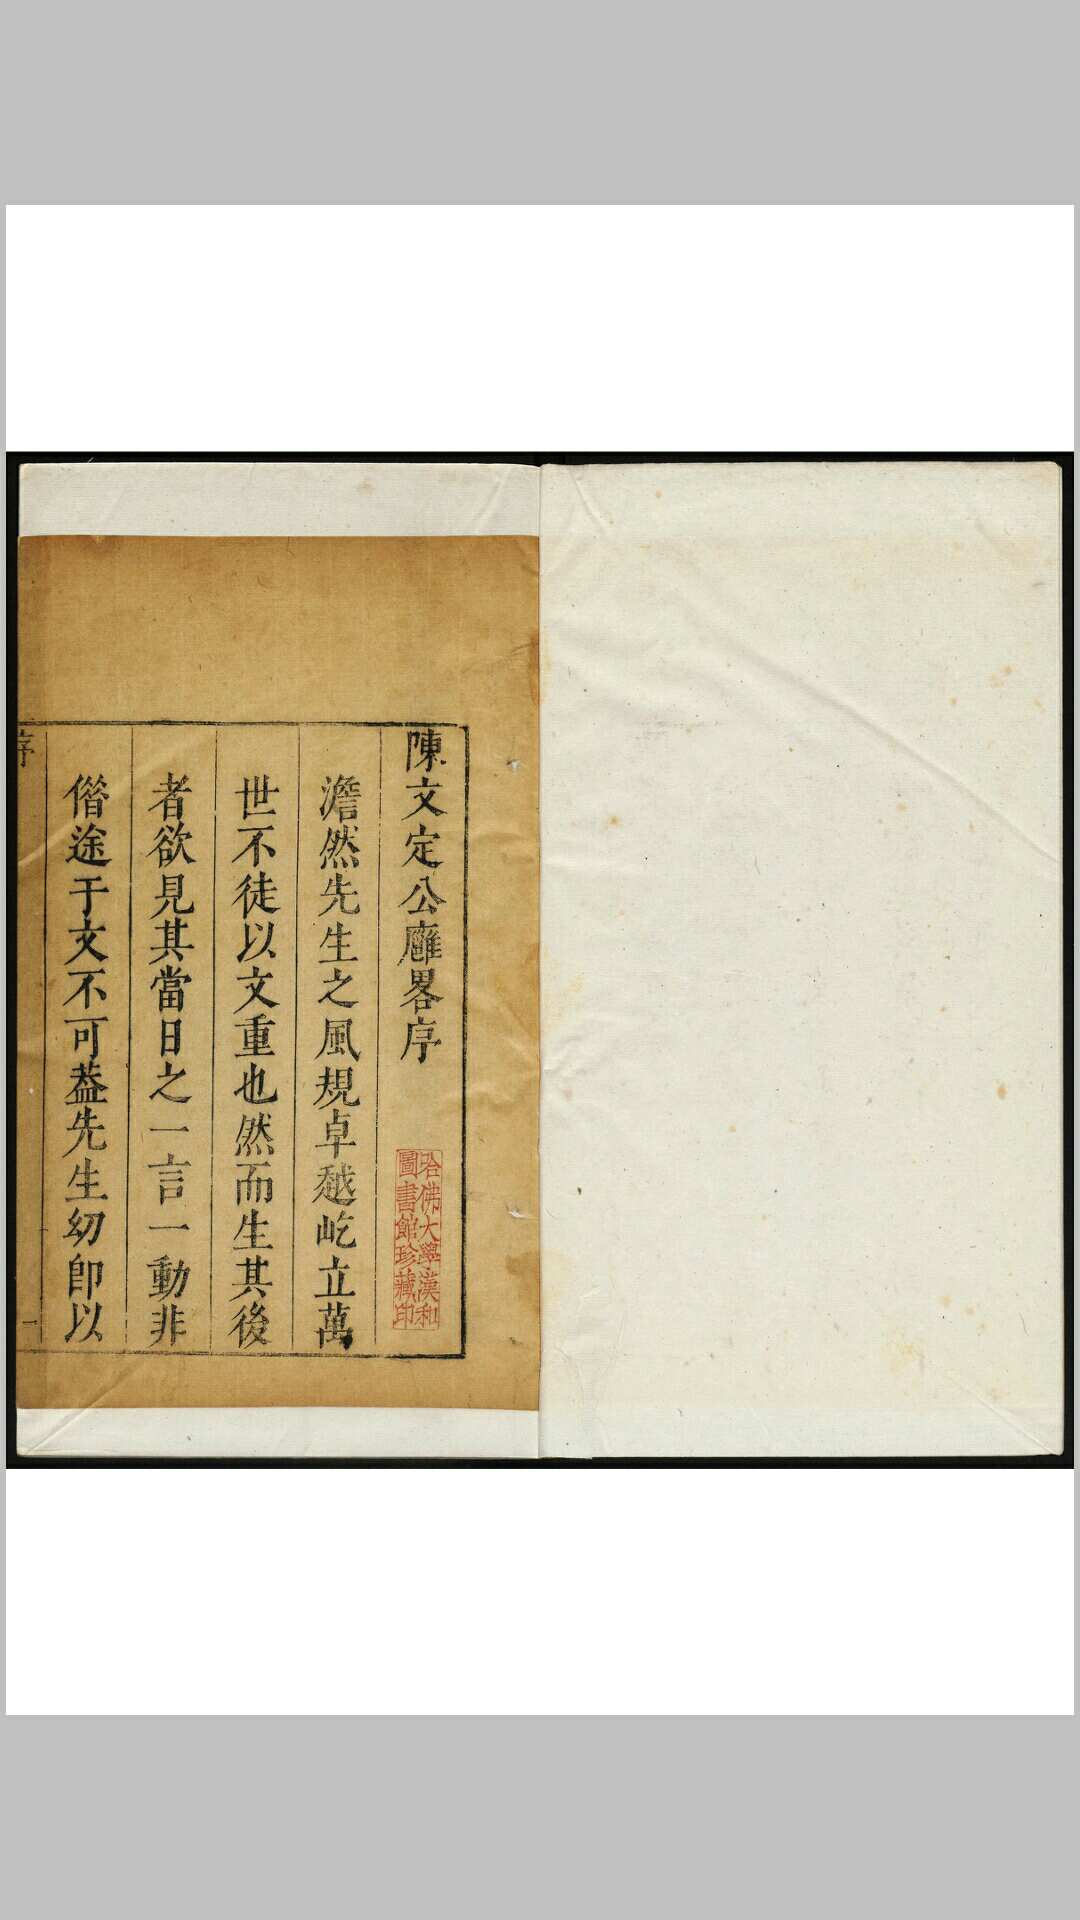 陳文定公廱畧序
澹然先生之風規卓越屹立萬
世不徒以文重也然而生其後
者欲見其當日之一言一動非
偺途于文不可葢先生幼卽以
序
一
哈佛大學漢和
圖書館珍藏印